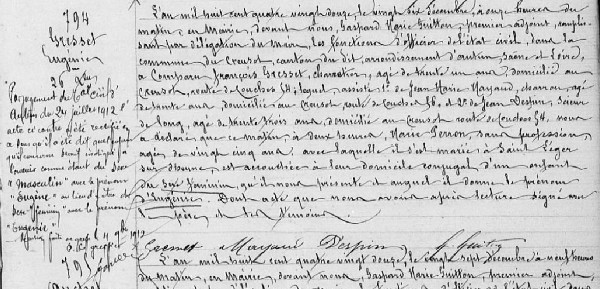 794
Gresset
Eugénie
26 Xbre
L'an mil huit cent quatre vingt douze, le vingt six décembre à onze heures du
matin, en Mairie, devant nous, Gaspard Marie Guitton, premier adjoint, remplis-
sant par délégation du Maire, les fonctions d'officier de l'état civil, dans la
commune du Creusot, canton du dit, arrondissement d'Autun, Saône et Loire,
a comparu François Gresset, âgé de trente un ans, domicilié au
Creusot, route de Couches 54, lequel, assisté 1° de Jean Marie Mayaud, âgé
de trente ans, domicilié au Creusot, route de Couches et 2° de Jean Despin, Scieur
de long, âgé de trente trois ans, domicilié au Creusot route de Couches 54, nous
a déclaré que ce matin, à deux heures, Marie Perron, sans profession,
âgée de vingt cinq ans, avec laquelle il s'est marié à Saint Léger
sur Dheune, est accouchée à leur domicile conjugal d'un enfant
du sexe féminin, qu'il nous présente et auquel il donne le prénom
d'Eugénie. Dont acte que nous avons après lecture signé avec
le père et les témoins.
Jugement du
Autun du 24 juillet 1912
acte ci contre a été rectifié
"masculin" avec le prénom
"Eugène" au lieu d'être du
sexe "féminin" avec le prénom
"Eugénie"
1912
Gresset Mayaud Despin G. Guitton
79
L'an mil huit cent quatre vingt douze, le vingt sept décembre à neuf heures
du matin, en Mairie, devant nous, Gaspard Marie Guitton, premier adjoint,